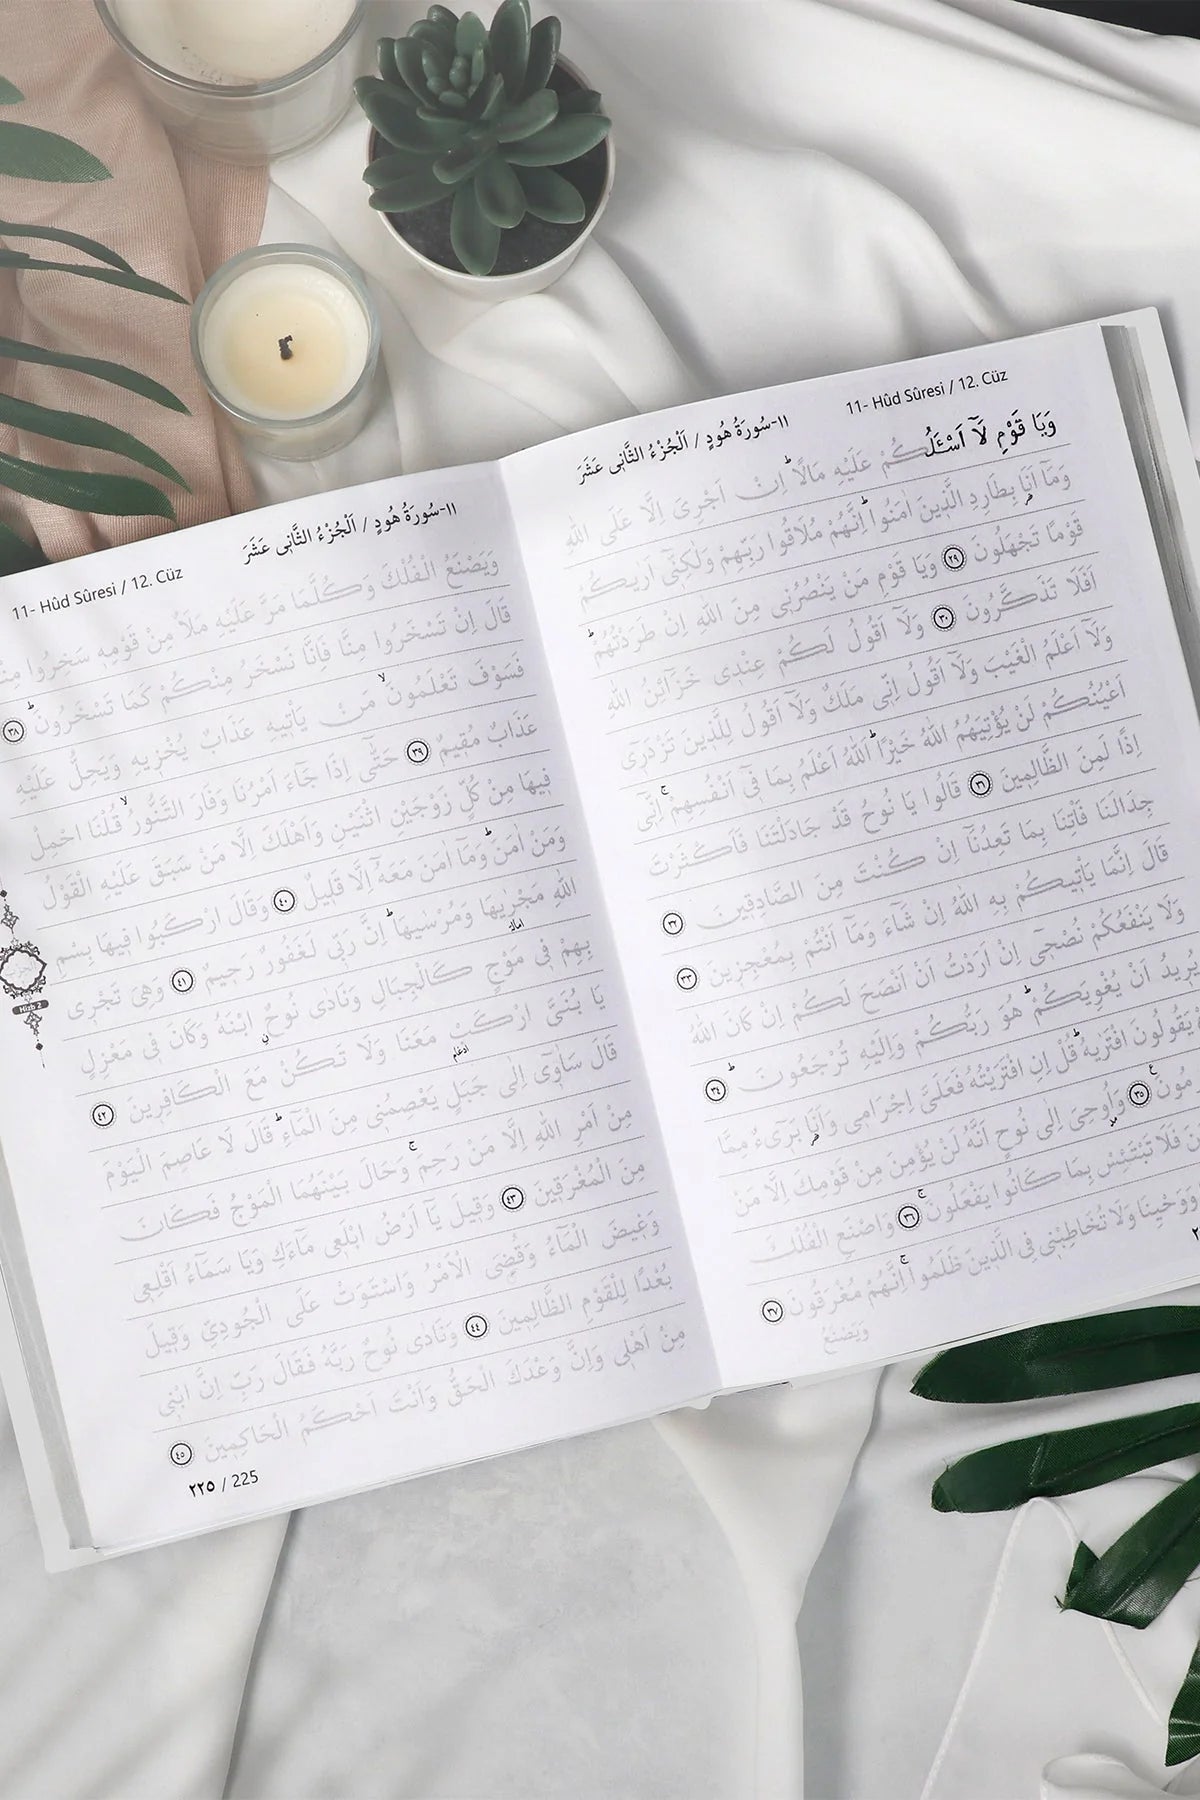 11- Hûd Sûresi / 12. Cüz
١١-سُورَةُ هُودٍ / اَلْجُزْءُ الثَّانِى عَشَرَ
وَيَا قَوْمِ لَٓا اَسْـَٔلُكُمْ عَلَيْهِ مَالًاۜ اِنْ اَجْرِىَ اِلَّا عَلَى اللّٰهِ
وَمَٓا اَنَا۬ بِطَارِدِ الَّذٖينَ اٰمَنُواۜ اِنَّهُمْ مُلَاقُوا رَبِّهِمْ وَلٰكِنّٖٓى اَرٰيكُمْ
قَوْمًا تَجْهَلُونَ ﴿٢٩﴾ وَيَا قَوْمِ مَنْ يَنْصُرُنٖى مِنَ اللّٰهِ اِنْ طَرَدْتُهُمْۜ
اَفَلَا تَذَكَّرُونَ ﴿٣٠﴾ وَلَٓا اَقُولُ لَكُمْ عِنْدٖى خَزَٓائِنُ اللّٰهِ
وَلَٓا اَعْلَمُ الْغَيْبَ وَلَٓا اَقُولُ اِنّٖى مَلَكٌ وَلَٓا اَقُولُ لِلَّذٖينَ تَزْدَرٖٓى
اَعْيُنُكُمْ لَنْ يُؤْتِيَهُمُ اللّٰهُ خَيْرًاۜ اَللّٰهُ اَعْلَمُ بِمَا فٖٓى اَنْفُسِهِمْۚ اِنّٖٓى
اِذًا لَمِنَ الظَّالِمٖينَ ﴿٣١﴾ قَالُوا يَا نُوحُ قَدْ جَادَلْتَنَا فَاَكْثَرْتَ
جِدَالَنَا فَأْتِنَا بِمَا تَعِدُنَٓا اِنْ كُنْتَ مِنَ الصَّادِقٖينَ ﴿٣٢﴾
قَالَ اِنَّمَا يَأْتٖيكُمْ بِهِ اللّٰهُ اِنْ شَٓاءَ وَمَٓا اَنْتُمْ بِمُعْجِزٖينَ ﴿٣٣﴾
وَلَا يَنْفَعُكُمْ نُصْحٖٓى اِنْ اَرَدْتُ اَنْ اَنْصَحَ لَكُمْ اِنْ كَانَ اللّٰهُ
يُرٖيدُ اَنْ يُغْوِيَكُمْۜ هُوَ رَبُّكُمْ وَاِلَيْهِ تُرْجَعُونَۜ ﴿٣٤﴾
يَقُولُونَ افْتَرٰيهُۜ قُلْ اِنِ افْتَرَيْتُهُ فَعَلَىَّ اِجْرَامٖى وَاَنَا۬ بَرٖٓىءٌ مِمَّا
﴿٣٥﴾ وَاُو۫حِىَ اِلٰى نُوحٍ اَنَّهُ لَنْ يُؤْمِنَ مِنْ قَوْمِكَ اِلَّا مَنْ
فَلَا تَبْتَئِسْ بِمَا كَانُوا يَفْعَلُونَۚ ﴿٣٦﴾ وَاصْنَعِ الْفُلْكَ
وَوَحْيِنَا وَلَا تُخَاطِبْنٖى فِى الَّذٖينَ ظَلَمُواۚ اِنَّهُمْ مُغْرَقُونَ ﴿٣٧﴾
وَيَصْنَعُ
11- Hûd Sûresi / 12. Cüz
١١-سُورَةُ هُودٍ / اَلْجُزْءُ الثَّانِى عَشَرَ
وَيَصْنَعُ الْفُلْكَ وَكُلَّمَا مَرَّ عَلَيْهِ مَلَاٌ مِنْ قَوْمِهٖ سَخِرُوا
قَالَ اِنْ تَسْخَرُوا مِنَّا فَاِنَّا نَسْخَرُ مِنْكُمْ كَمَا تَسْخَرُونَۜ ﴿٣٨﴾
فَسَوْفَ تَعْلَمُونَۙ مَنْ يَأْتٖيهِ عَذَابٌ يُخْزٖيهِ وَيَحِلُّ عَلَيْهِ
عَذَابٌ مُقٖيمٌ ﴿٣٩﴾ حَتّٰٓى اِذَا جَٓاءَ اَمْرُنَا وَفَارَ التَّنُّورُۙ قُلْنَا احْمِلْ
فٖيهَا مِنْ كُلٍّ زَوْجَيْنِ اثْنَيْنِ وَاَهْلَكَ اِلَّا مَنْ سَبَقَ عَلَيْهِ الْقَوْلُ
وَمَنْ اٰمَنَۜ وَمَٓا اٰمَنَ مَعَهُٓ اِلَّا قَلٖيلٌ ﴿٤٠﴾ وَقَالَ ارْكَبُوا فٖيهَا بِسْمِ
اللّٰهِ مَجْرٰۭيهَا وَمُرْسٰيهَاۜ اِنَّ رَبّٖى لَغَفُورٌ رَحٖيمٌ ﴿٤١﴾ وَهِىَ تَجْرٖى
بِهِمْ فٖى مَوْجٍ كَالْجِبَالِ وَنَادٰى نُوحٌۨ ابْنَهُ وَكَانَ فٖى مَعْزِلٍ
يَا بُنَىَّ ارْكَبْ مَعَنَا وَلَا تَكُنْ مَعَ الْكَافِرٖينَ ﴿٤٢﴾
قَالَ سَاٰوٖٓى اِلٰى جَبَلٍ يَعْصِمُنٖى مِنَ الْمَٓاءِۜ قَالَ لَا عَاصِمَ الْيَوْمَ
مِنْ اَمْرِ اللّٰهِ اِلَّا مَنْ رَحِمَۚ وَحَالَ بَيْنَهُمَا الْمَوْجُ فَكَانَ
مِنَ الْمُغْرَقٖينَ ﴿٤٣﴾ وَقٖيلَ يَٓا اَرْضُ ابْلَعٖى مَٓاءَكِ وَيَا سَمَٓاءُ اَقْلِعٖى
وَغٖيضَ الْمَٓاءُ وَقُضِىَ الْاَمْرُ وَاسْتَوَتْ عَلَى الْجُودِىِّ وَقٖيلَ
بُعْدًا لِلْقَوْمِ الظَّالِمٖينَ ﴿٤٤﴾ وَنَادٰى نُوحٌ رَبَّهُ فَقَالَ رَبِّ اِنَّ ابْنٖى
مِنْ اَهْلٖى وَاِنَّ وَعْدَكَ الْحَقُّ وَاَنْتَ اَحْكَمُ الْحَاكِمٖينَ ﴿٤٥﴾
Hizb 2
٢٢٥ / 225